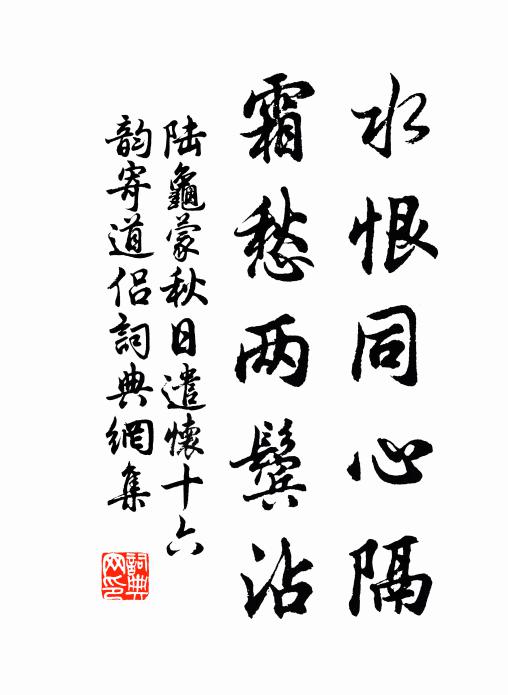 水恨同心隔
霜愁两鬓沾
陆龜蒙秋日遣懷十六
韵寄道侣詞典網集
詞典網印